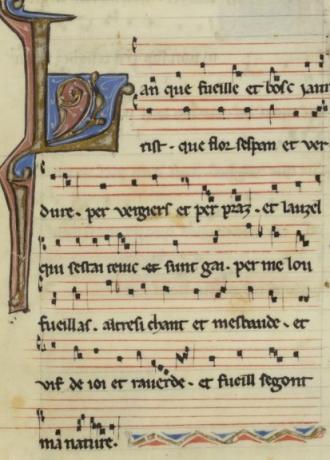 Lan que fueille et bosc jaur
rist. que flor sespan et ver
dure. per vergiers et per praz. et lauzel
qui sestai encuc et sunt gai. per me lou
fueillas. altresi chant et mesbaude. et
vif de ioi et rauerde. et fueill segont
ma nature.